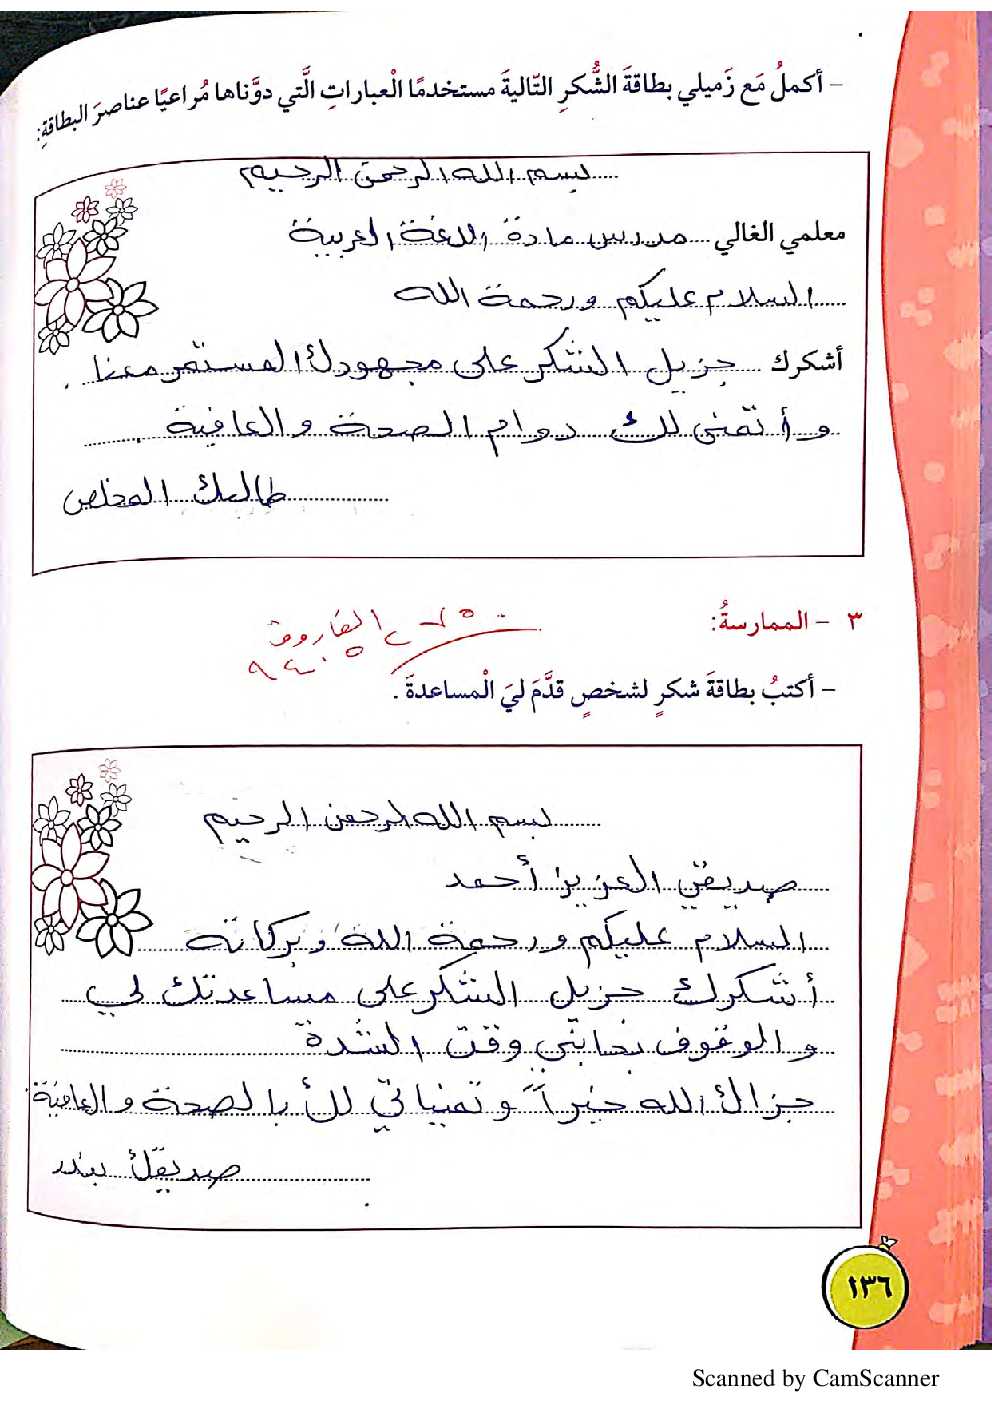 - أكملُ مَع زَميلي بطاقةَ الشُّكرِ التّاليةَ مستخدمًا الْعباراتِ الَّتي دوَّناها مُراعيًا عناصرَ البطاقةِ:
بسم الله الرحمن الرحيم
معلمي الغالي مدرس مادة اللغة العربية
السلام عليكم ورحمة الله
أشكرك جزيل الشكر على مجهودك المستمر معنا .
وأتمنى لك دوام الصحة والعافية
طالبك المخلص
٣ - الممارسةُ:
الفاروق
- أكتبُ بطاقةَ شكرٍ لشخصٍ قدَّمَ ليَ الْمساعدةَ.
بسم الله الرحمن الرحيم
صديقي العزيز أحمد
السلام عليكم ورحمة الله وبركاته
أشكرك جزيل الشكر على مساعدتك لي
والوقوف بجانبي وقت الشدة
جزاك الله خيراً وتمنياتي لك بالصحة والعافية
صديقك بندر
١٣٦
Scanned by CamScanner